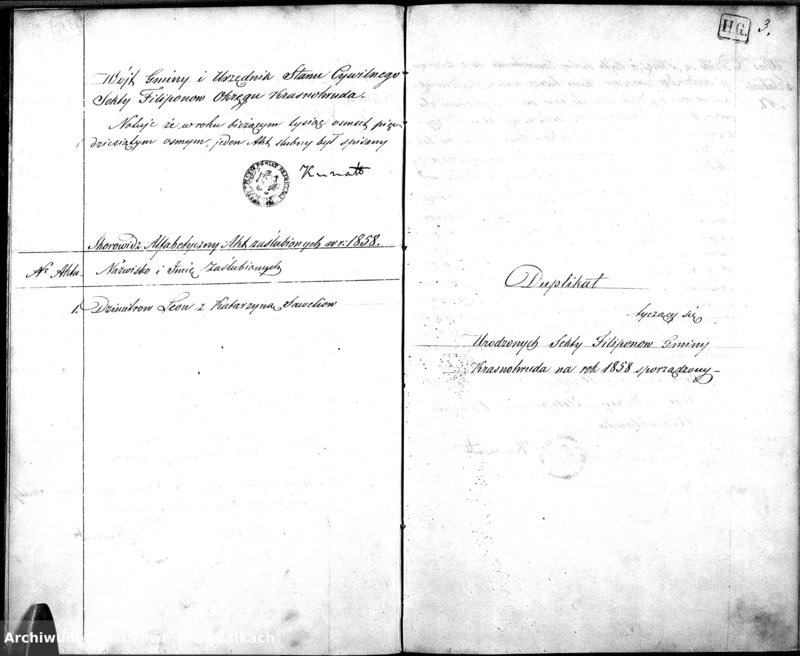 Wójt Gminy i Urzędnik Stanu Cywilnego
Sekty Filiponow Okręgu Krasnohruda
Notuje że w roku bieżącym tysiąc ośmset pięć-
dziesiątym osmym, jeden Akt slubny był spisany
Kunatt
Skorowidz Alfabetyczny Akt zaślubionych w r. 1858.
Nr Aktu Nazwisko i Imię Zaślubionych
1. Dzimitrow Leon z Katarzyną Saweliow
H.G. 3.
Duplikat
tyczący się
Urodzonych Sekty Filiponow Gminy
Krasnohruda na rok 1858 sporządzony
Archiwum Państwowe w Suwałkach